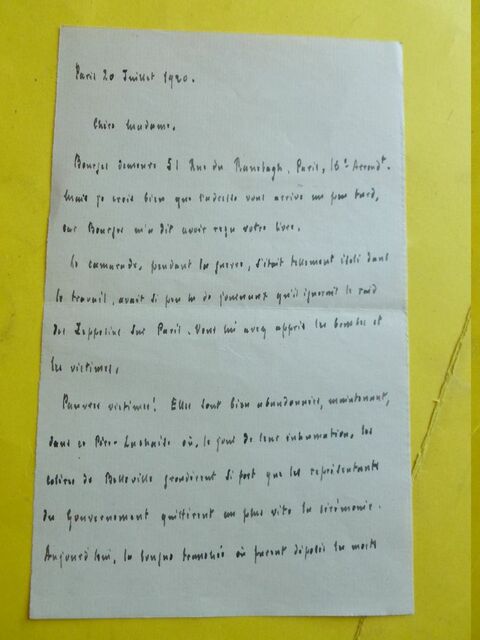 Paris 20 Juillet 1920.
Chère Madame,
Bourges demeure 51 Rue du Ranelagh. Paris, 16e Arrondt.
Mais je crois bien que l'adresse vous arrive un peu tard,
car Bourges m'a dit avoir reçu votre livre.
Ce camarade, pendant la guerre, s'était tellement isolé dans
le travail, avait si peu lu de journaux qu'il ignorait le raid
des Zeppelins sur Paris. Vous lui avez appris les bombes et
les victimes.
Pauvres victimes! Elles sont bien abandonnées, maintenant,
dans ce Père-Lachaise où, le jour de leur inhumation, les
colères de Belleville grondèrent si fort que les représentants
du Gouvernement quittèrent au plus vite la cérémonie.
Aujourd'hui, la longue tranchée où furent déposés les morts